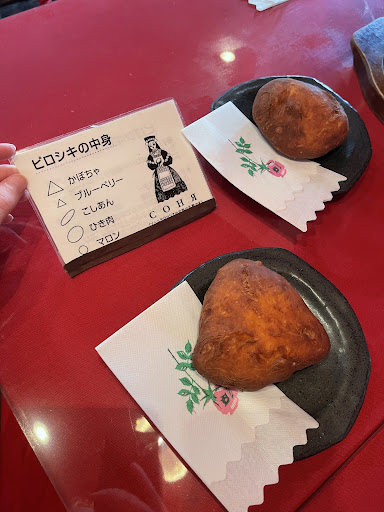 ピロシキの中身
△ かぼちゃ
△ ブルーベリー
○ こしあん
○ ひき肉
○ マロン
СОНЯ